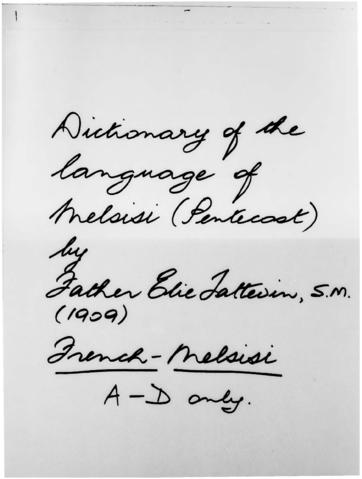 Dictionary of the
language of
Melsisi (Pentecost)
by
Father Elie Tattevin, S.M.
(1909)
French - Melsisi
A - D only.